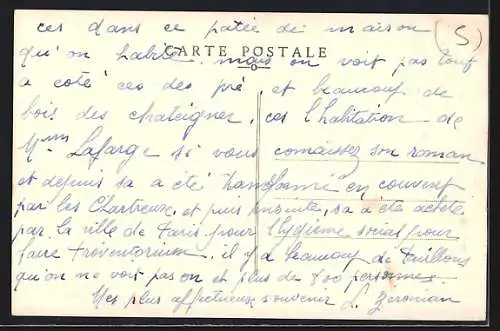 ces dans ce patée de maison (5)
CARTE POSTALE
qu'on habite mais on voit pas touf
a coté ces des pré, et beaucoup de
bois des chateigner, ces l'habitation de
Mme Lafarge si vous comaissez son roman
et depuis sa a été transformé en couvent
par les Chartreuse, et puis ensuite, sa a été acheté
par la ville de Paris pour l'hygiène social pour
faire préventorium, il y a beaucoup de Pavillons
qu'on ne voit pas on et plus de 800 personnes.
Mes plus affectueux souvenir L. Zeronian